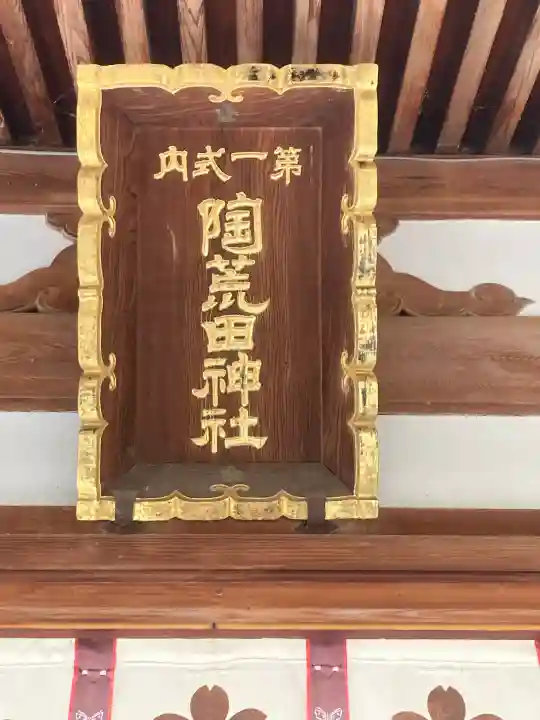 第一式内
陶荒田神社